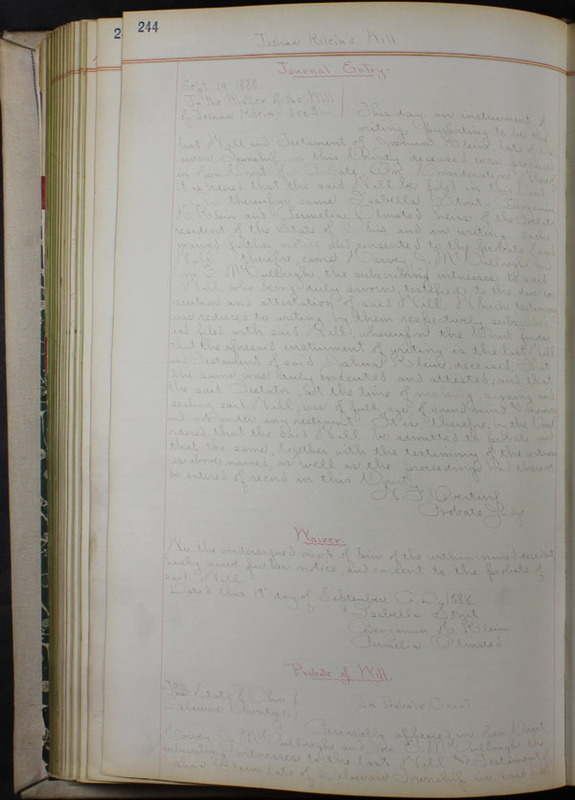 2
244
Joshua Klein's Will
Journal Entry.
Sept. 19" 1888
In the Matter of the Will
of Joshua Klein Dec'd
This day an instrument of
writing, purporting to be the
last Will and Testament of Joshua Klein, late of
Township in this County, deceased was produced
in open Court for Probate, Upon Consideration whereof
it is ordered that the said Will be filed in this Court
thereupon came Isabella Benjamin
Klein and Olmsted heirs of the testator
resident of the State of Ohio and in writing
waived further notice and consented to the probate of said
Will therefore, came McCullough and
McCullough, the subscribing witnesses to said
Will who being duly sworn, testified to the due ex-
ecution and attestation of said Will Which testimony
was reduced to writing by them respectively subscribed
and filed with said Will, whereupon the Court finds
that the aforesaid instrument of writing is the last Will
and Testament of said Joshua Klein, deceased, that
the same was duly executed and attested; and that
the said Testator, at the time of making signing and
sealing said Will, was of full age of sound mind & memory
and not under any restraint. It is, therefore, by the Court
ordered that the said Will be admitted to probate and
that the same, together with the testimony of the witnesses
as above named, as well as the proceedings had thereon
be entered of record in this Court.
Probate Judge
Waiver.
We the undersigned next of kin of the within named decedent
hereby waive further notice, and consent to the probate of
said Will.
Dated this 19" day of September A.D. 1888.
Isabella
Benjamin Klein
Olmsted
Probate of Will.
The State of Ohio
Delaware County
In Probate Court
Personally appeared in open Court
McCullough and McCullough the
subscribing witnesses to the last Will & Testament of
Joshua Klein late of Delaware Township in said